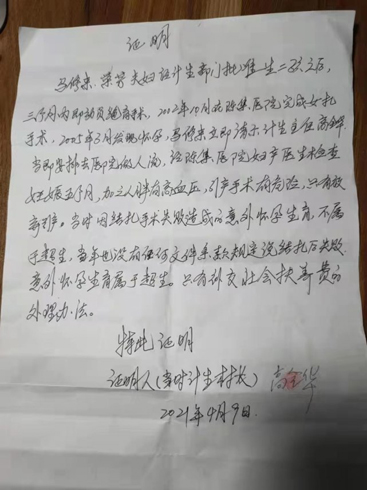 证明
马修来、荣芳夫妇经计生部门批准生二孩之后,
三个月内即动员结扎手术,2002年10月在陈集医院完成女扎
手术,2005年3月发现怀孕,马修来立即请示计生主任高锋
当即安排去医院做人流,经陈集医院妇产医生检查
妊娠五个月,加之人胖有高血压,引产手术有危险,只有放
弃引产。当时因结扎手术失败造成的意外怀孕生育,不属
于超生,当年也没有任何文件条款规定说结扎后失败,
意外怀孕生育属于超生。只有补交社会抚养费的
处理办法。
特此证明
证明人(当时计生村长) 高金华
2021年4月9日.